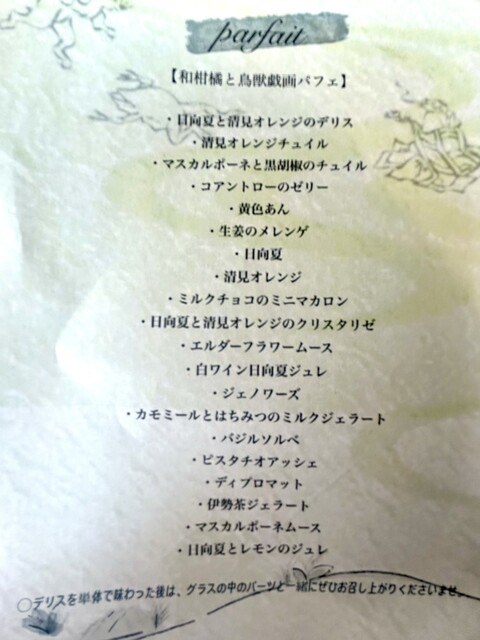 parfait
【和柑橘と鳥獣戯画パフェ】
・日向夏と清見オレンジのデリス
・清見オレンジチュイル
・マスカルポーネと黒胡椒のチュイル
・コアントローのゼリー
・黄色あん
・生姜のメレンゲ
・日向夏
・清見オレンジ
・ミルクチョコのミニマカロン
・日向夏と清見オレンジのクリスタリゼ
・エルダーフラワームース
・白ワイン日向夏ジュレ
・ジェノワーズ
・カモミールとはちみつのミルクジェラート
・バジルソルベ
・ピスタチオアッシェ
・ディプロマット
・伊勢茶ジェラート
・マスカルポーネムース
・日向夏とレモンのジュレ
○デリスを単体で味わった後は、グラスの中のパーツと一緒にぜひお召し上がりくださいませ。